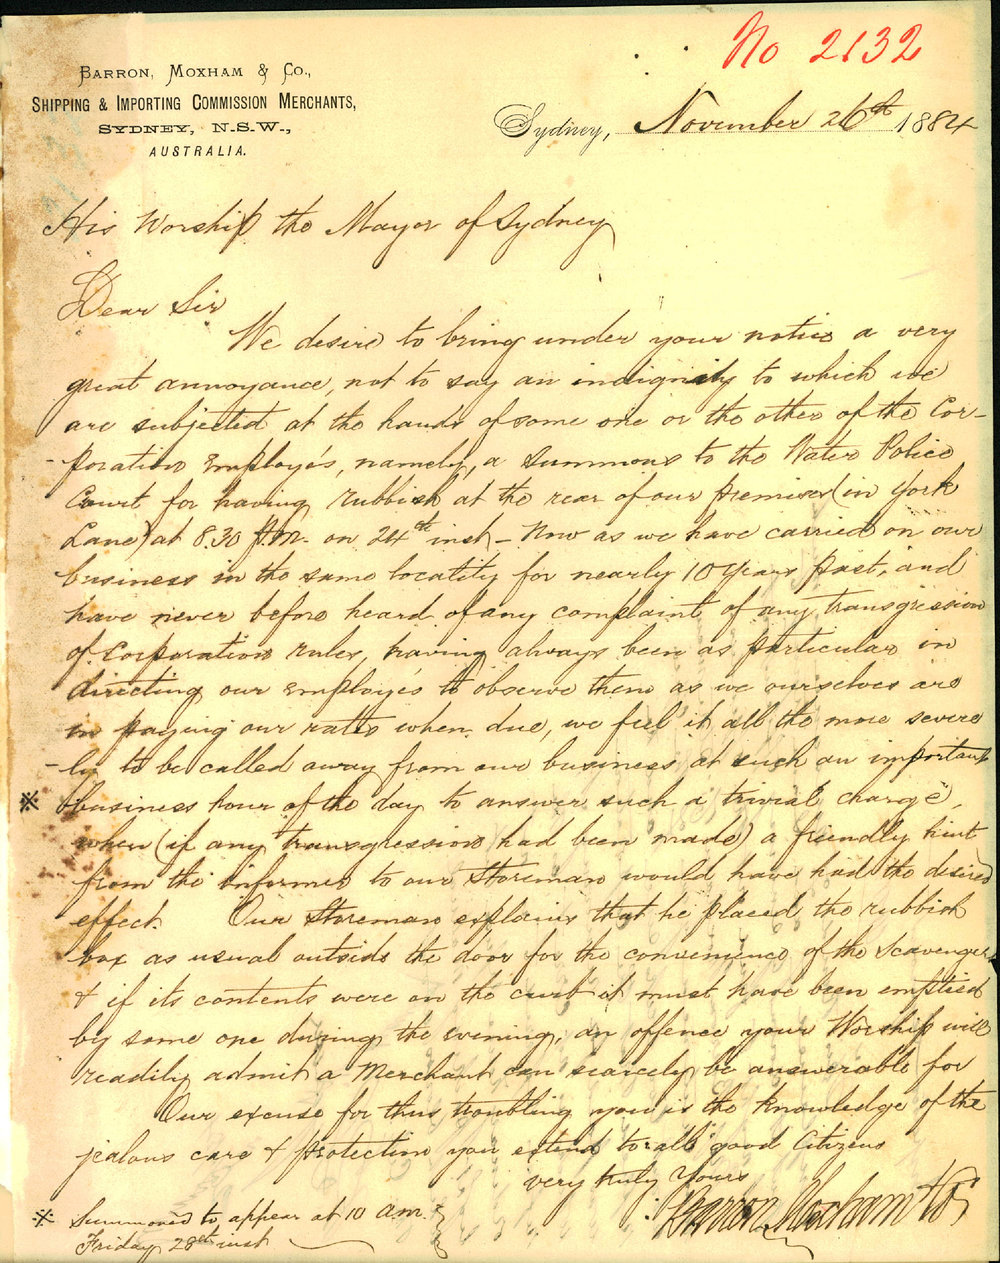 No 2132
BARRON, MOXHAM & CO.,
SHIPPING & IMPORTING COMMISSION MERCHANTS,
SYDNEY, N.S.W.,
AUSTRALIA.
Sydney, November 26th 1884
His Worship the Mayor of Sydney
Dear Sir
We desire to bring under your notice a very
great annoyance, not to say an indignity to which we
are subjected at the hands of some one or the other of the Cor-
-poration Employés, namely, a Summons to the Water Police
Court for having rubbish at the rear of our premises (in York
Lane) at 8.30 p.m. on 24th inst - Now as we have carried on our
business in the same locality for nearly 10 years past, and
have never before heard of any complaint of any transgression
of Corporation rules, having always been as particular in
directing our Employés to observe them as we ourselves are
in paying our rates when due, we feel it all the more severe
-ly to be called away from our business at such an important
※ business hour of the day to answer such a trivial charge,
when (if any transgression had been made) a friendly hint
from the informer to our Storeman would have had the desired
effect. Our Storeman explains that he placed the rubbish
box as usual outside the door for the convenience of the Scavenger
& if its contents were on the curb it must have been emptied
by some one during the evening, an offence your Worship will
readily admit a Merchant can scarcely be answerable for
Our excuse for thus troubling you is the knowledge of the
jealous care & protection you extend to all good Citizens
very truly Yours
Barron Moxham & Co
※ Summoned to appear at 10 a.m.
Friday 28th inst